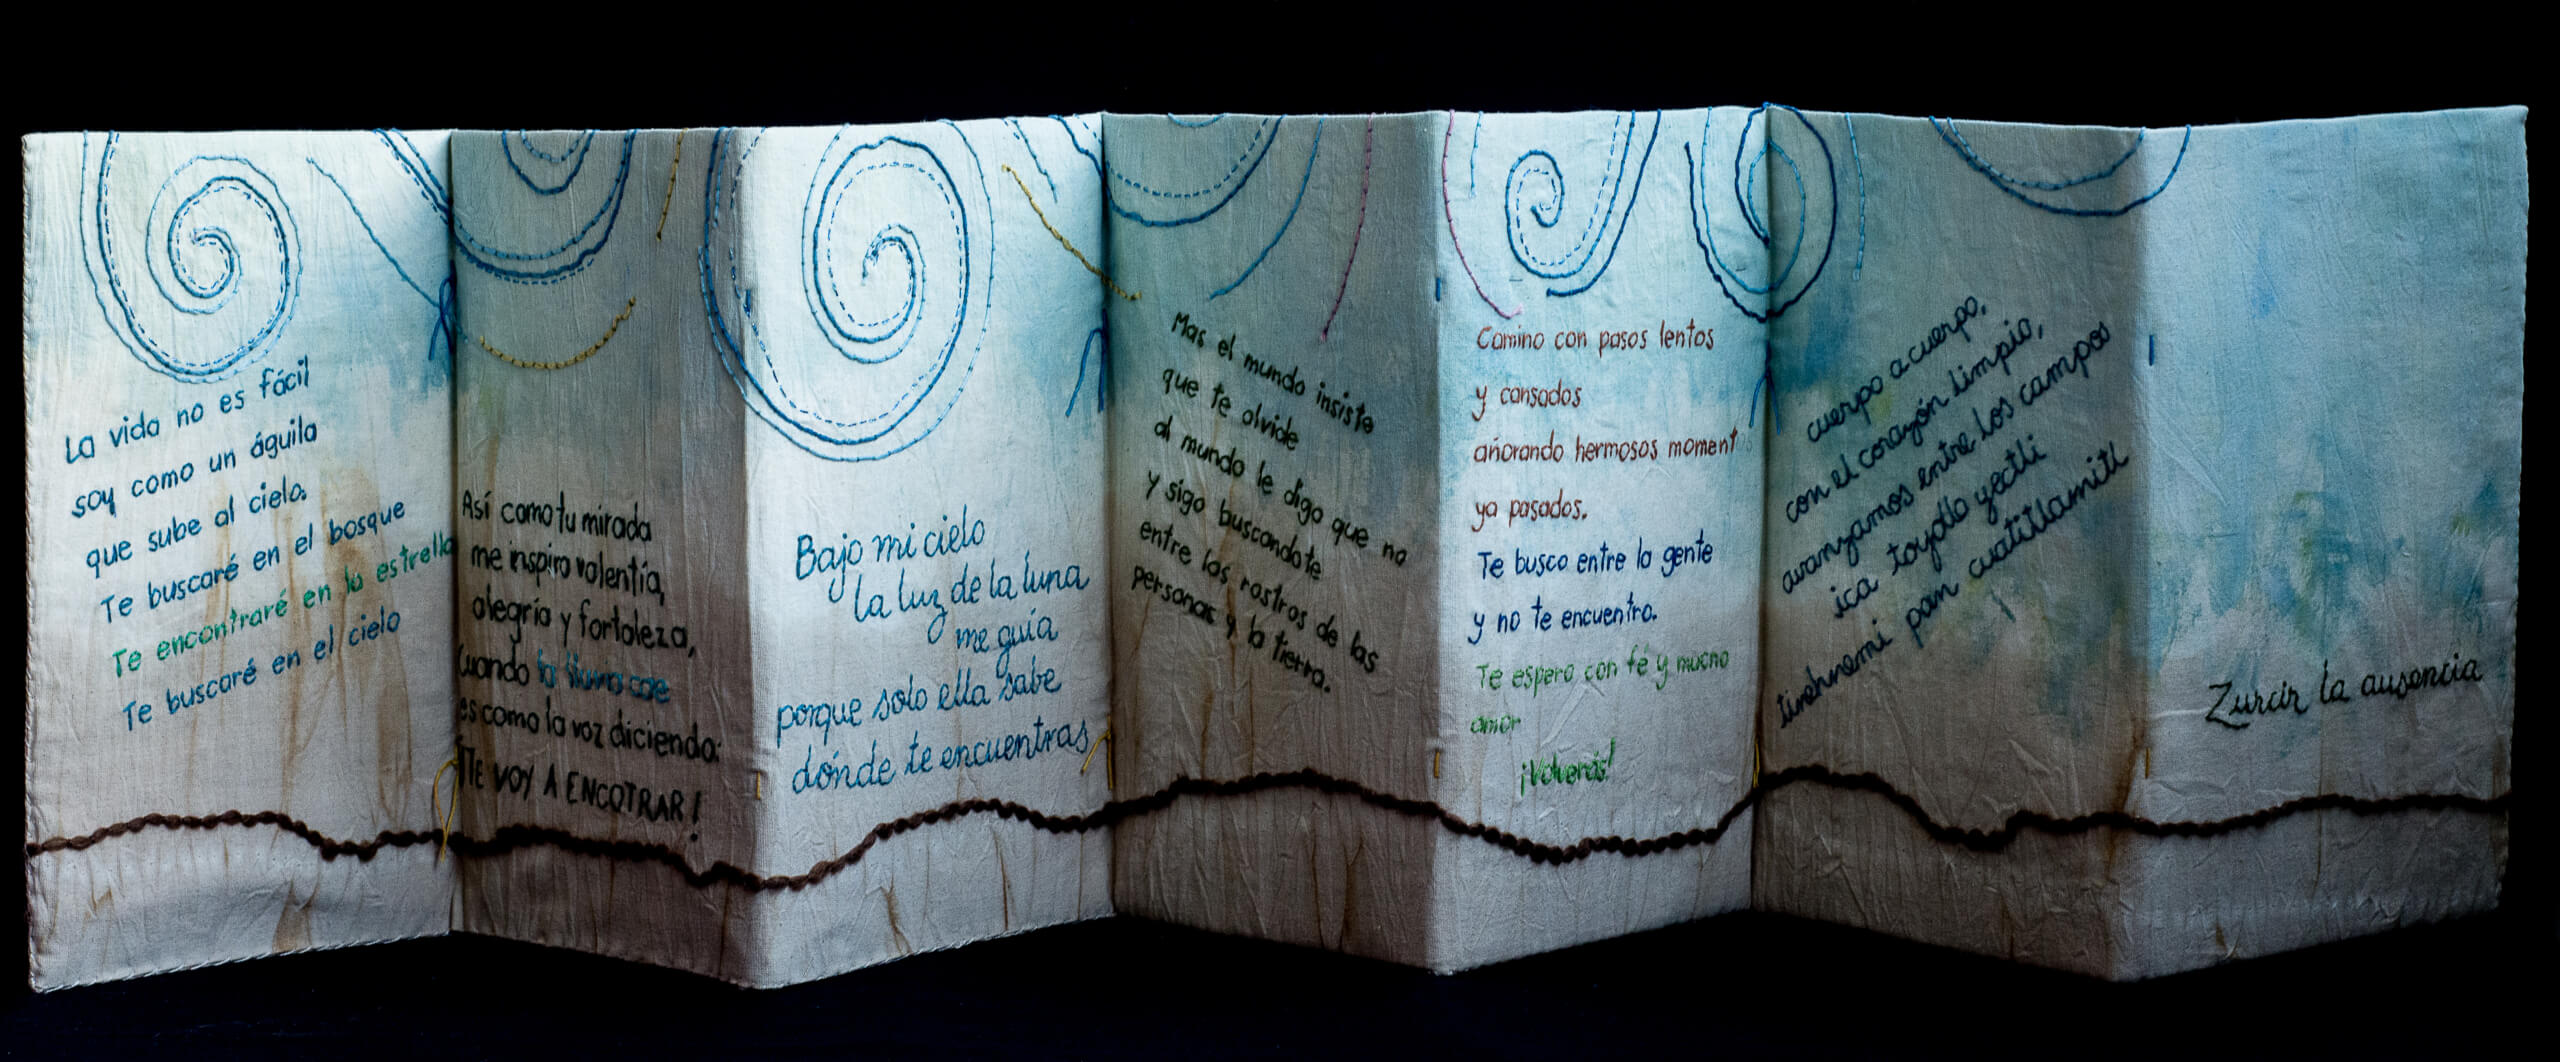 La vida no es fácil
soy como un águila
que sube al cielo.
Te buscaré en el bosque
Te encontraré en la estrella
Te buscaré en el cielo
Así como tu mirada
me inspiro valentía,
alegría y fortaleza,
Cuando la lluvia cae
es como la voz diciendo:
¡TE VOY A ENCOTRAR!
Bajo mi cielo
la luz de la luna
me guía
porque solo ella sabe
dónde te encuentras
Mas el mundo insiste
que te olvide
al mundo le digo que no
y sigo buscandote
entre los rostros de las
personas y la tierra.
Camino con pasos lentos
y cansados
añorando hermosos momentos
ya pasados.
Te busco entre la gente
y no te encuentro.
Te espero con fé y mucho
amor
¡Volverás!
cuerpo a cuerpo,
con el corazón limpio,
avanzamos entre los campos
ica toyotlo yectli
tinehnemi pan cuatitlamitl
Zurcir la ausencia